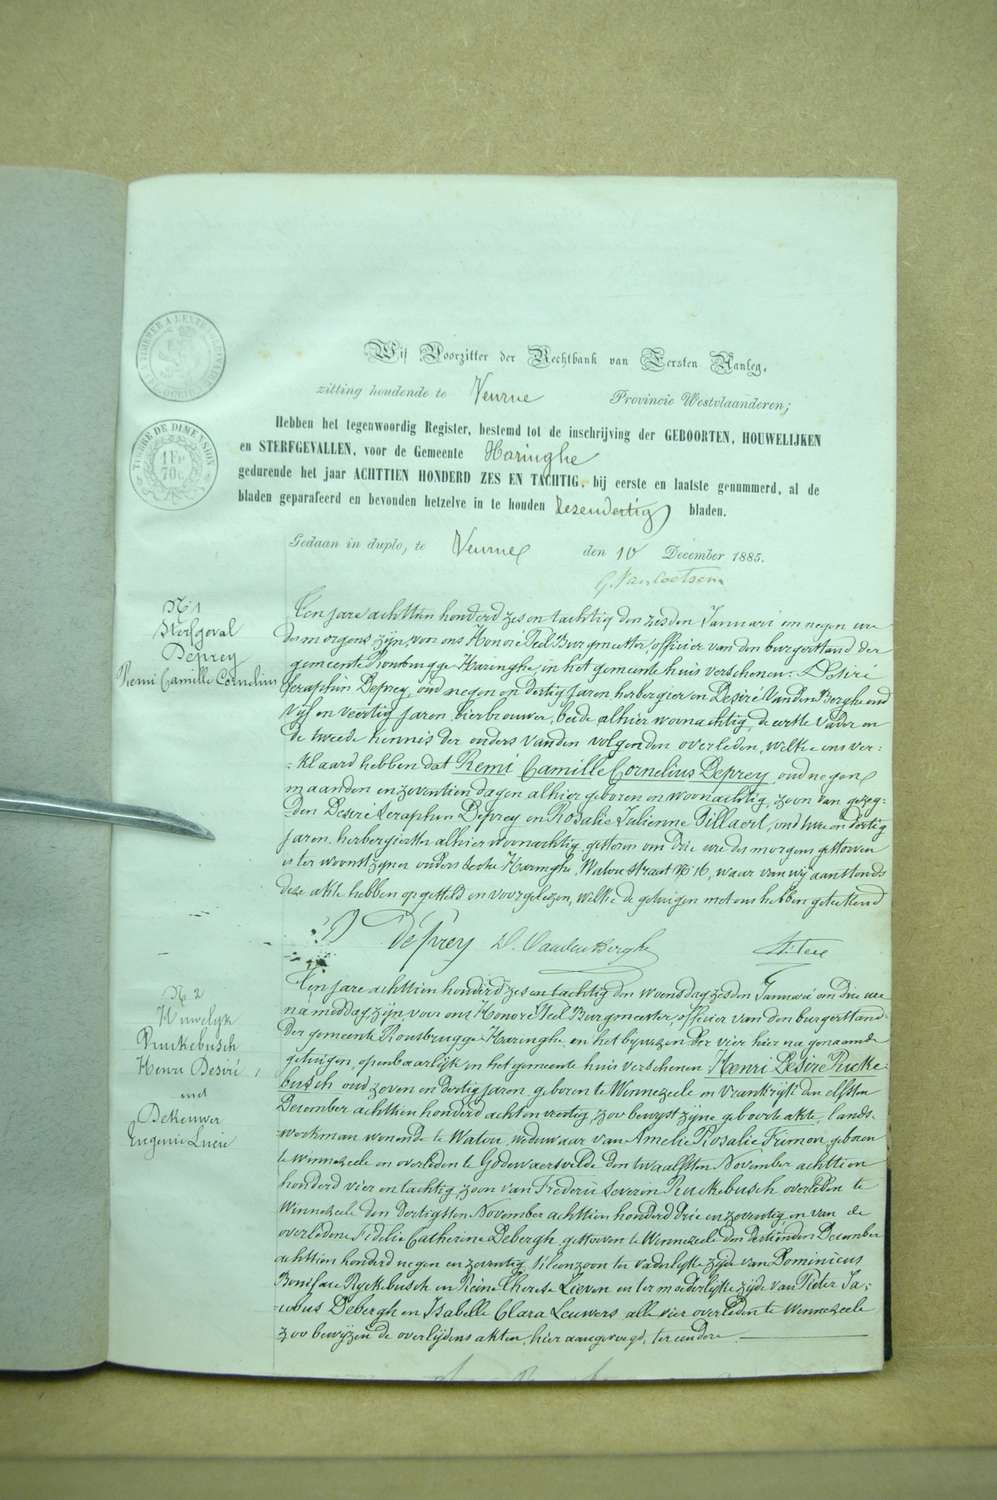 Wij Voorzitter der Rechtbank van Eersten Aanleg,
zitting houdende te Veurne Provincie Westvlaanderen;
Hebben het tegenwoordig Register, bestemd tot de inschrijving der GEBOORTEN, HOUWELIJKEN
en STERFGEVALLEN, voor de Gemeente Haringhe
gedurende het jaar ACHTTIEN HONDERD ZES EN TACHTIG, bij eerste en laatste genummerd, al de
bladen geparafeerd en bevonden hetzelve in te houden zesendertig bladen.
Gedaan in duplo, te Veurne den 10 December 1885.
TIMBRE DE DIMENSION
1 Fr
70 c.
N 1
Sterfgeval
Deprey
Remi Camille Cornelius
Ten jare achttien honderd zes en tachtig den zesden Januari om negen ure
des morgens zijn, voor ons Honoré Teil Burgmeester, officier van den burgerstand der
gemeente Rousbrugge Haringhe, in het gemeente huis verschenen: Desiré
Seraphin Deprey, oud negen en dertig jaren herbergier en Desiré Vanden Berghe oud
vijf en veertig jaren, bierbrouwer, beide alhier woonachtig, de eerste vader en
de tweede kennis der ouders van den volgenden overleden, welke ons ver-
klaard hebben dat Remi Camille Cornelius Deprey, oud negen
maanden en zeventien dagen alhier geboren en woonachtig, zoon van gezeg-
den Desiré Seraphin Deprey en Rosalie Julienne Tillaert, oud twee en dertig
jaren, herbergierster alhier woonachtig, gisteren om drie ure des morgens gestorven
is ter woonst zijner ouders sectie Haringhe, Watou straat N 16, waar van wij aanstonds
deze akte hebben opgesteld en voorgelezen, welke de getuigen met ons hebben geteekend
D Deprey D. Vanden Berghe
N 2
Huwelijk
Ruckebusch
Henri Desiré
met
Dekeuwer
Eugenie Lucie
Ten jare achttien honderd zes en tachtig den woensdag zesden Januari om drie ure
na middag zijn, voor ons Honoré Teil Burgmeester, officier van den burgerstand
der gemeente Rousbrugge Haringhe, en het bijwezen der vier hier na genaamde
getuigen, openbaarlijk in het gemeente huis verschenen Henri Desiré Rucke-
busch oud zeven en dertig jaren geboren te Winnezeele en Vrankrijk den elfsten
December achttien honderd acht en veertig, zoo bewijst zijne geboorte akte, lands-
werkman wonende te Watou, weduwaar van Amelie Rosalie Frimon, geboren
te Winnezeele en overleden te Godewaersvelde den twaalfsten November achttien
honderd vier en tachtig, zoon van Frederic Severin Ruckebusch overleden te
Winnezeele den dertigsten November achttien honderd drie en zeventig en van de
overledene Fidelie Catherine Debergh, gestorven te Winnezeele den December
achttien honderd negen en zeventig, kleinzoon ter vaderlijke zijde van Dominicus
Boniface Ryckebusch en Reine Therese Lieven en ter moederlijke zijde van Pieter Ja-
cobus Debergh en Isabelle Clara Leuwers alle vier overleden te Winnezeele
zoo bewijzen de overlijdens akten, hier aangevoegd, ter eendere